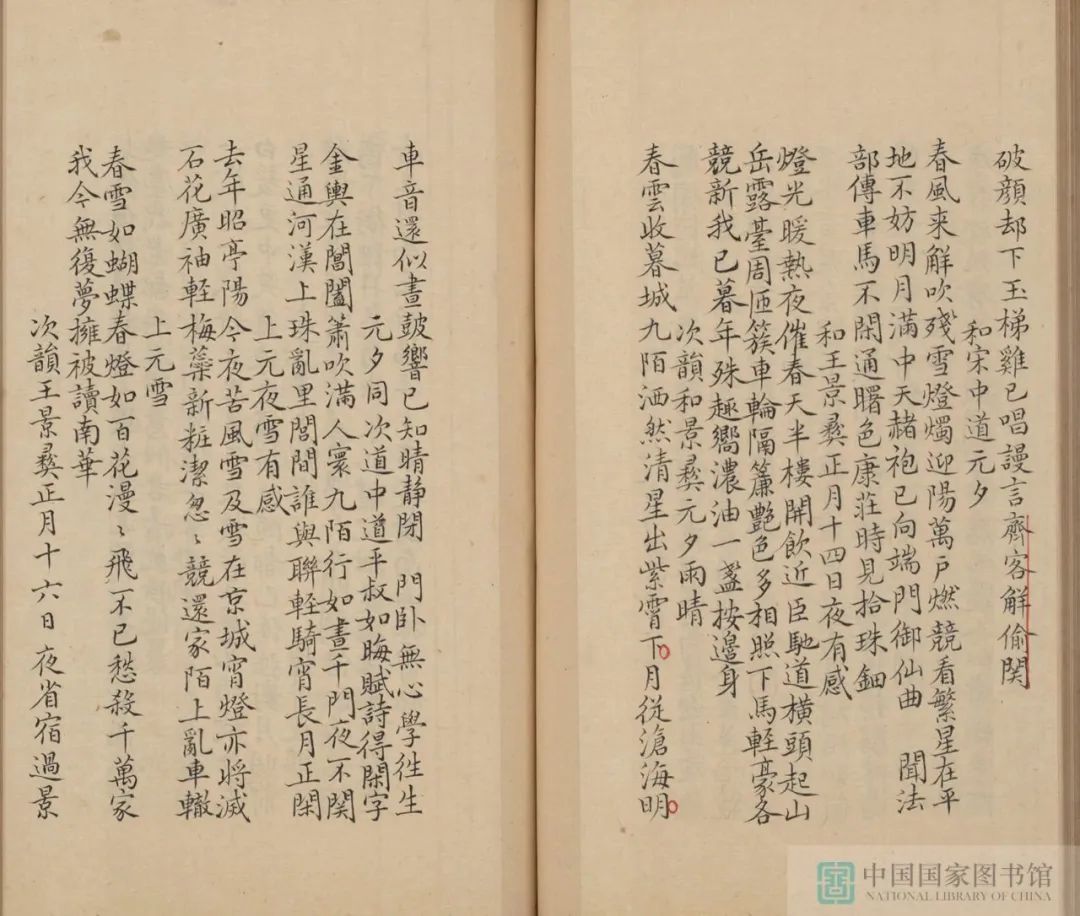 破顔却下玉梯雞已唱謾言齊客觧偷関
和宋中道元夕
春風来解吹殘雪燈燭迎陽萬戸燃競看繁星在平
地不妨明月滿中天赭袍已向端門御仙曲 聞法
部傳車馬不閑通曙色康莊時見拾珠鈿
和王景彝正月十四日夜有感
燈光暖熱夜催春天半樓開飲近臣馳道横頭起山
岳露臺周匝簇車輪隔簾艷色多相照下馬輕豪各
競新我已暮年殊趣嚮濃油一盞按邊身
次韻和景彝元夕雨晴
春雲收暮城九陌洒然清星出紫霄下月從滄海明
車音還似晝鼓響已知晴静閉 門卧無心學徃生
元夕同次道中道平叔如晦賦詩得閑字
金輿在閶闔簫吹滿人寰九陌行如晝千門夜不関
星通河漢上珠亂里閭間誰與聯輕騎宵長月正閑
上元夜雪有感
去年昭亭陽今夜苦風雪及雪在京城宵燈亦將滅
石花廣袖輕梅蘂新粧潔忽〻競還家陌上亂車轍
上元雪
春雪如蝴蝶春燈如百花漫〻飛不已愁殺千萬家
我今無復夢擁被讀南華
次韻王景彝正月十六日夜省宿過景
中国国家图书馆
NATIONAL LIBRARY OF CHINA